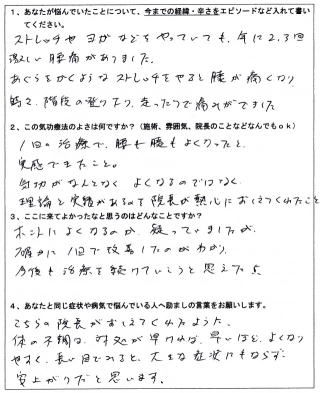 1、あなたが悩んでいたことについて、今までの経緯・辛さをエピソードなど入れて書い
てください。
ストレッチや ヨガなどをやっていても、年に2、3回
激しい腰痛がありました。
あぐらをかくような ストレッチをやると 腰が痛くなり
階段の登りたり、走ったりで痛みがでました
2、この気功療法のよさは何ですか？（施術、雰囲気、院長のことなどなんでもok）
1回の治療で、腰も膝もよくなったと、
実感できたこと。
気功がなんとなく よくなるのではなく、
理論と実績があるのを院長が熱心におしえてくれたこと
3、ここに来てよかったなと思うのはどんなことですか？
ホントによくなるのか、疑っていましたが、
確実に1回で改善したのがわかり、
今後も治療を続けていこうと思えた点
4、あなたと同じ症状や病気で悩んでいる人へ励ましの言葉をお願いします。
こちらの院長がおしえてくれたように、
体の不調は、対処が早ければ、早いほど、よくなり
やすく、長い目でみると、大きな症状にもならず、
安上がりだと思います。